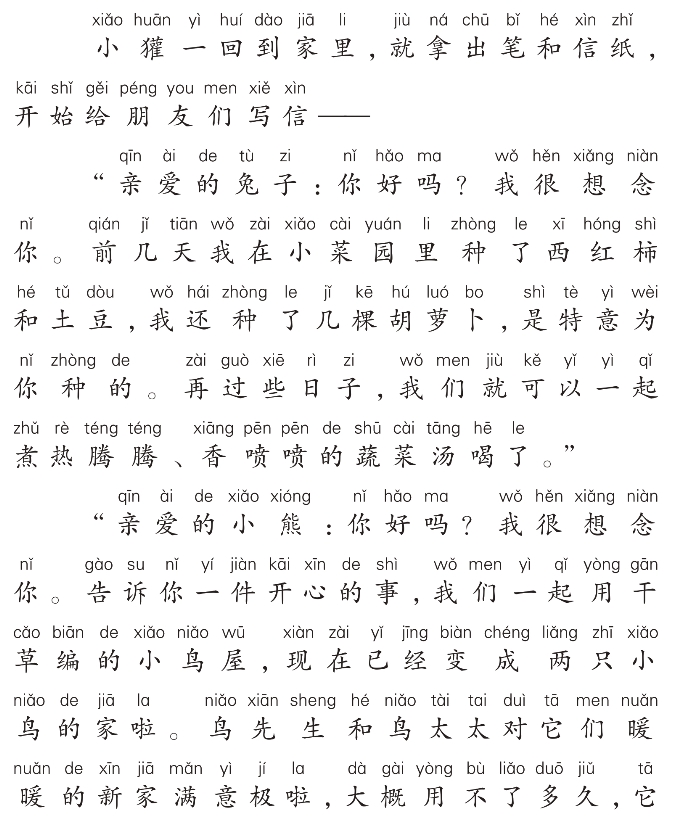 xiǎo huān yì huí dào jiā li jiù ná chū bǐ hé xìn zhǐ
小獾一回到家里，就拿出笔和信纸，
kāi shǐ gěi péng you men xiě xìn
开始给朋友们写信——
qīn ài de tù zi nǐ hǎo ma wǒ hěn xiǎng niàn
“亲爱的兔子：你好吗？我很想念
nǐ qián jǐ tiān wǒ zài xiǎo cài yuán li zhòng le xī hóng shì
你。前几天我在小菜园里种了西红柿
hé tǔ dòu wǒ hái zhòng le jǐ kē hú luó bo shì tè yì wèi
和土豆，我还种了几棵胡萝卜，是特意为
nǐ zhòng de zài guò xiē rì zi wǒ men jiù kě yǐ yì qǐ
你种的。再过些日子，我们就可以一起
zhǔ rè téng téng xiāng pēn pēn de shū cài tāng hē le
煮热腾腾、香喷喷的蔬菜汤喝了。”
qīn ài de xiǎo xióng nǐ hǎo ma wǒ hěn xiǎng niàn
“亲爱的小熊：你好吗？我很想念
nǐ gào su nǐ yí jiàn kāi xīn de shì wǒ men yì qǐ yòng gān
你。告诉你一件开心的事，我们一起用干
cǎo biān de xiǎo niǎo wū xiàn zài yǐ jīng biàn chéng liǎng zhī xiǎo
草编的小鸟屋，现在已经变成两只小
niǎo de jiā la niǎo xiān sheng hé niǎo tài tai duì tā men nuǎn
鸟的家啦。鸟先生和鸟太太对它们暖
nuǎn de xīn jiā mǎn yì jí la dà gài yòng bù liǎo duō jiǔ tā
暖的新家满意极啦，大概用不了多久，它